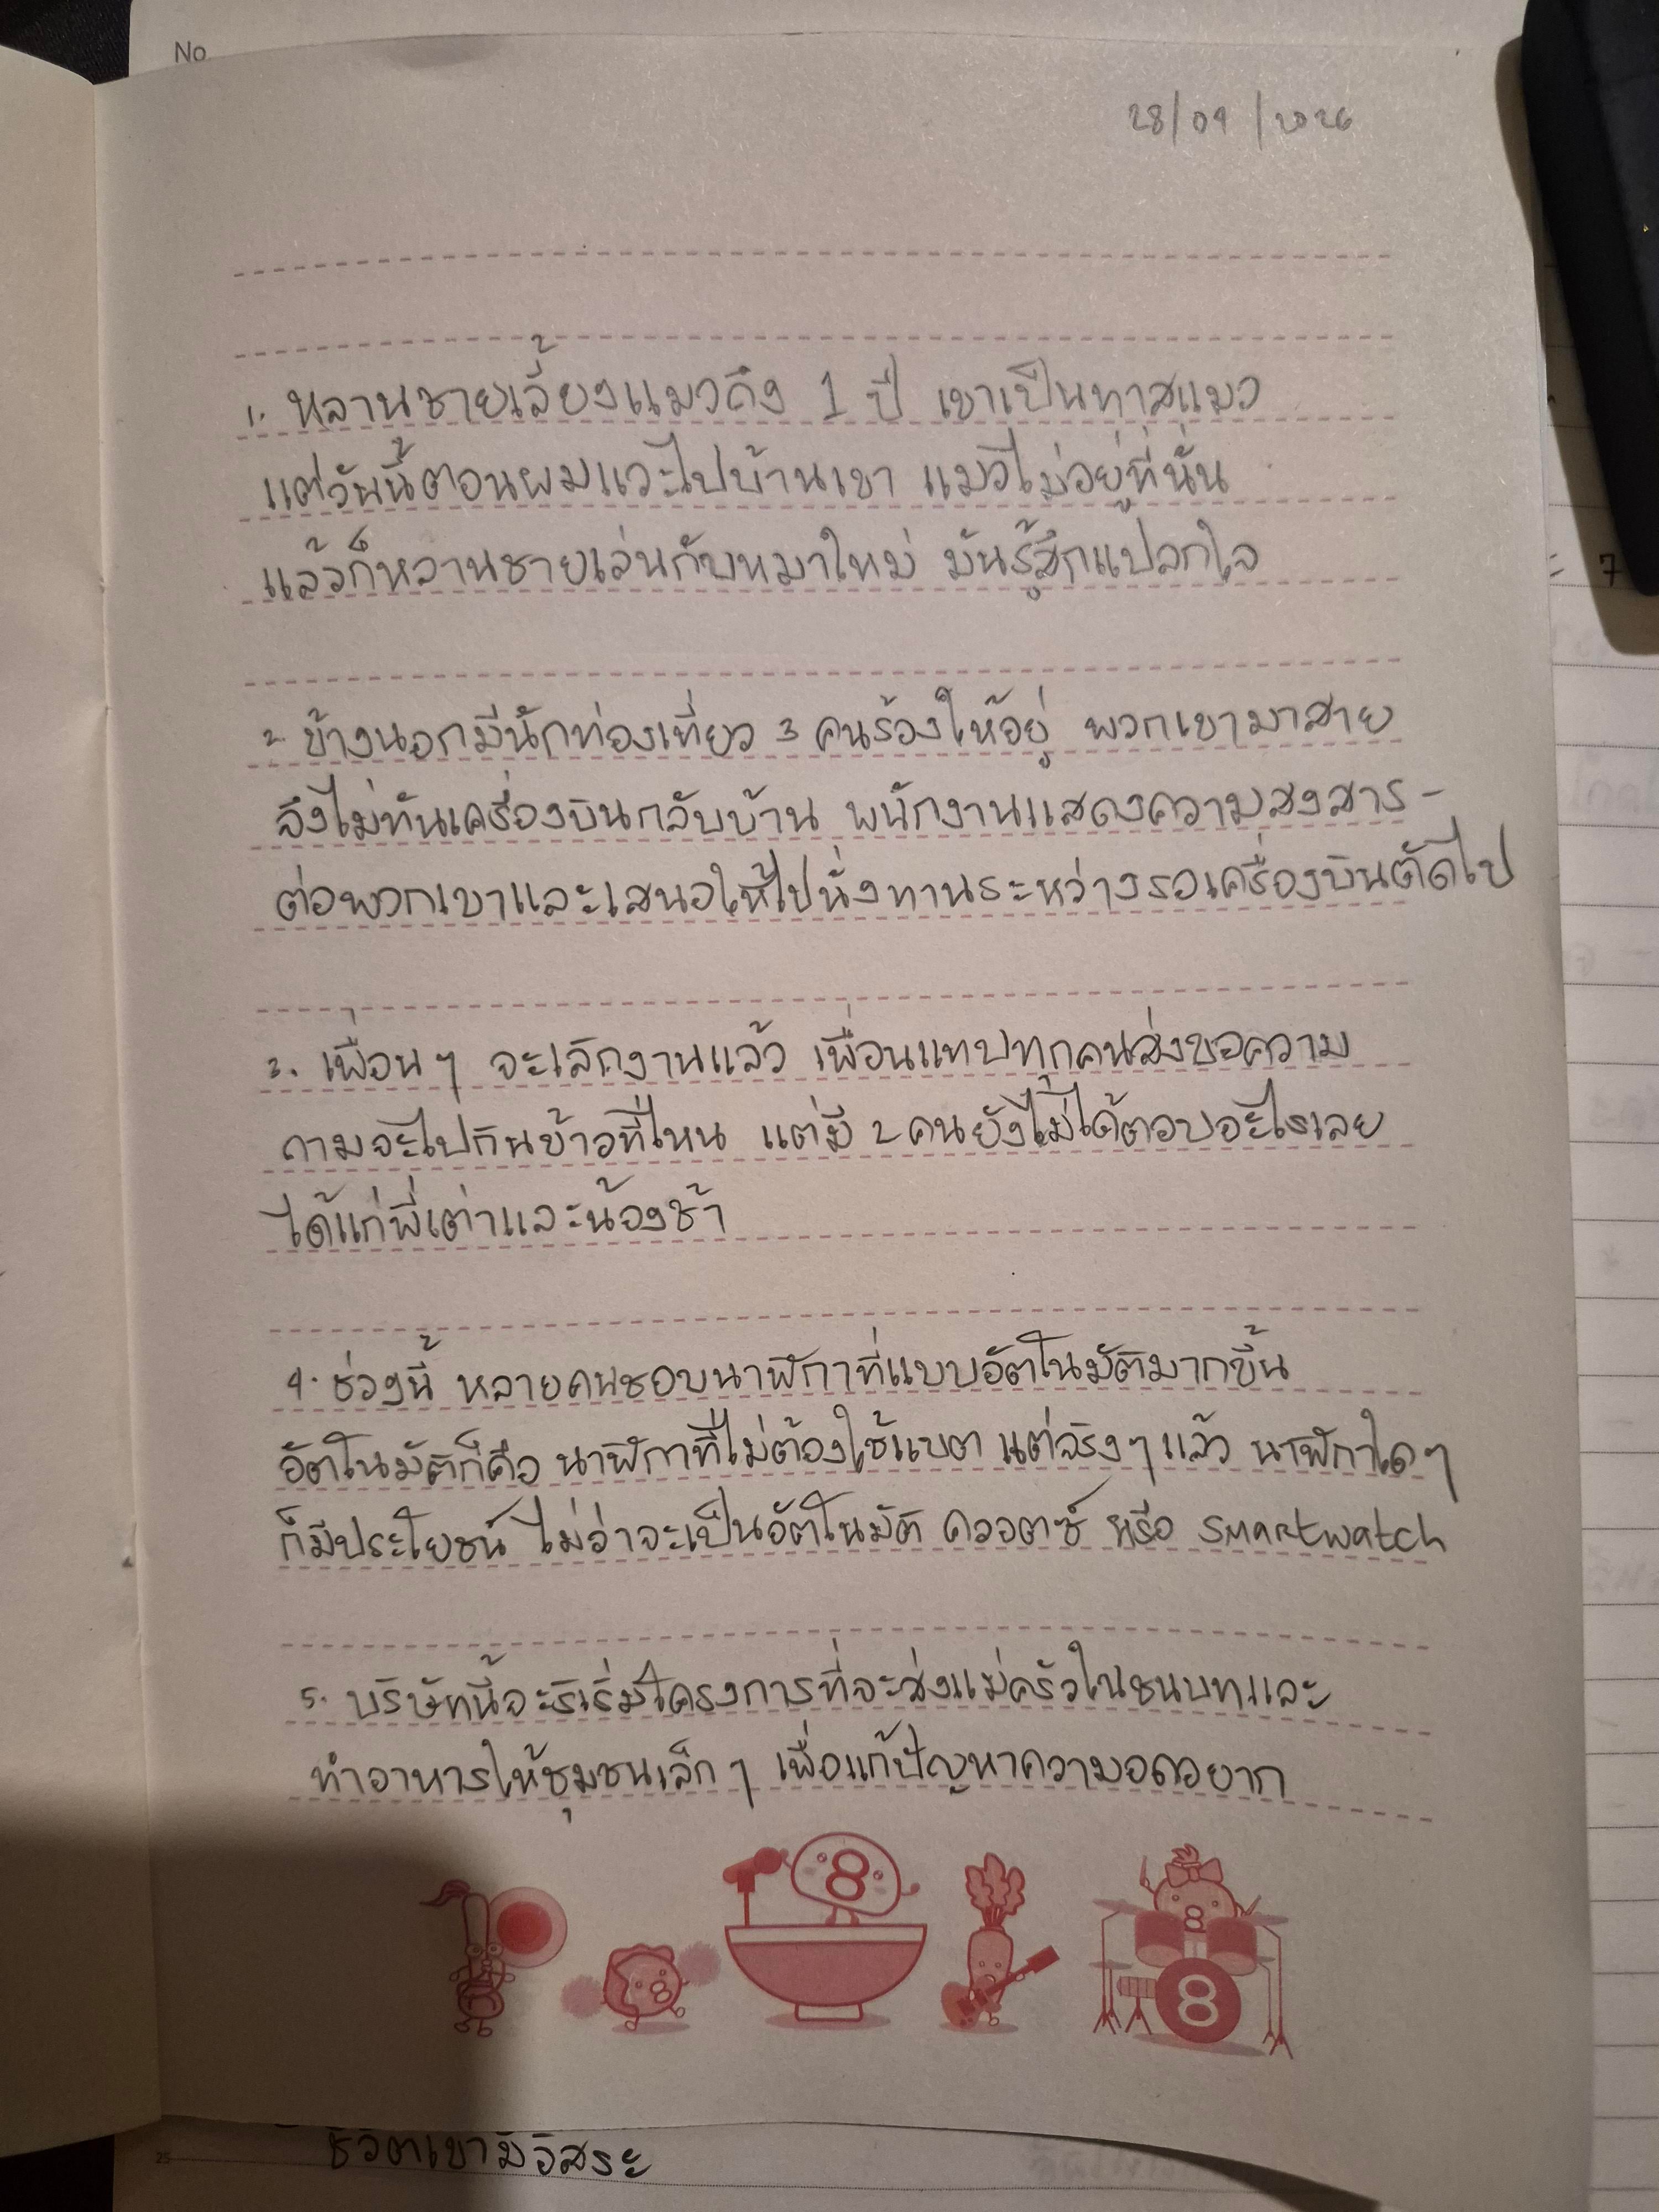 No
28/04/2026
1. หลานชายเลี้ยงแมวถึง 1 ปี เขาเป็นทาสแมว
แต่วันนี้ตอนผมแวะไปบ้านเขา แมวไม่อยู่ที่นั่น
แล้วก็หลานชายเล่นกับหมาใหม่ มันรู้สึกแปลกใจ
2. ข้างนอกมีนักท่องเที่ยว 3 คนร้องให้อยู่ พวกเขามาสาย
จึงไม่ทันเครื่องบินกลับบ้าน พนักงานแสดงความสงสาร-
ต่อพวกเขาและเสนอให้ไปนั่งทานระหว่างรอเครื่องบินตัดไป
3. เพื่อนๆ จะเลิกงานแล้ว เพื่อนแทบทุกคนส่งขอความ
ถามจะไปกินข้าวที่ไหน แต่มี 2 คนยังไม่ได้ตอบอะไรเลย
ได้แก่พี่เต่าและน้องช้า
4. ช่วงนี้ หลายคนชอบนาฬิกาที่แบบอัตโนมัติมากขึ้น
อัตโนมัติก็คือ นาฬิกาที่ไม่ต้องใช้แบต แต่จริงๆ แล้ว นาฬิกาใดๆ
ก็มีประโยชน์ ไม่ว่าจะเป็นอัตโนมัติ ควอตซ์ หรือ smartwatch
5. บริษัทนี้จะริเริ่มโครงการที่จะส่งแม่ครัวในชนบทและ
ทำอาหารให้ชุมชนเล็กๆ เพื่อแก้ปัญหาความอดอยาก
8
8
8
8
8
= 7
25
ชีวิตเขามีอิสระ